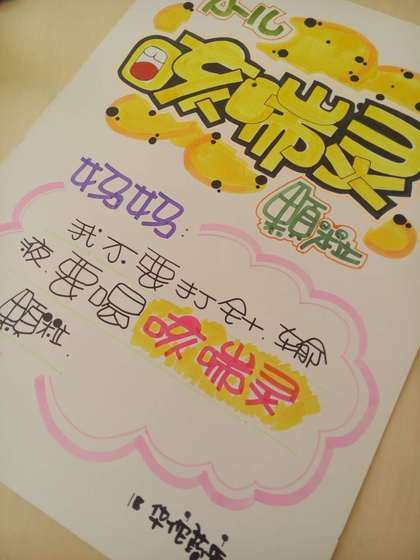 小儿
咳喘灵
颗粒
妈妈:
我不要打针.输
液.要喝咳喘灵
颗粒.
华佗